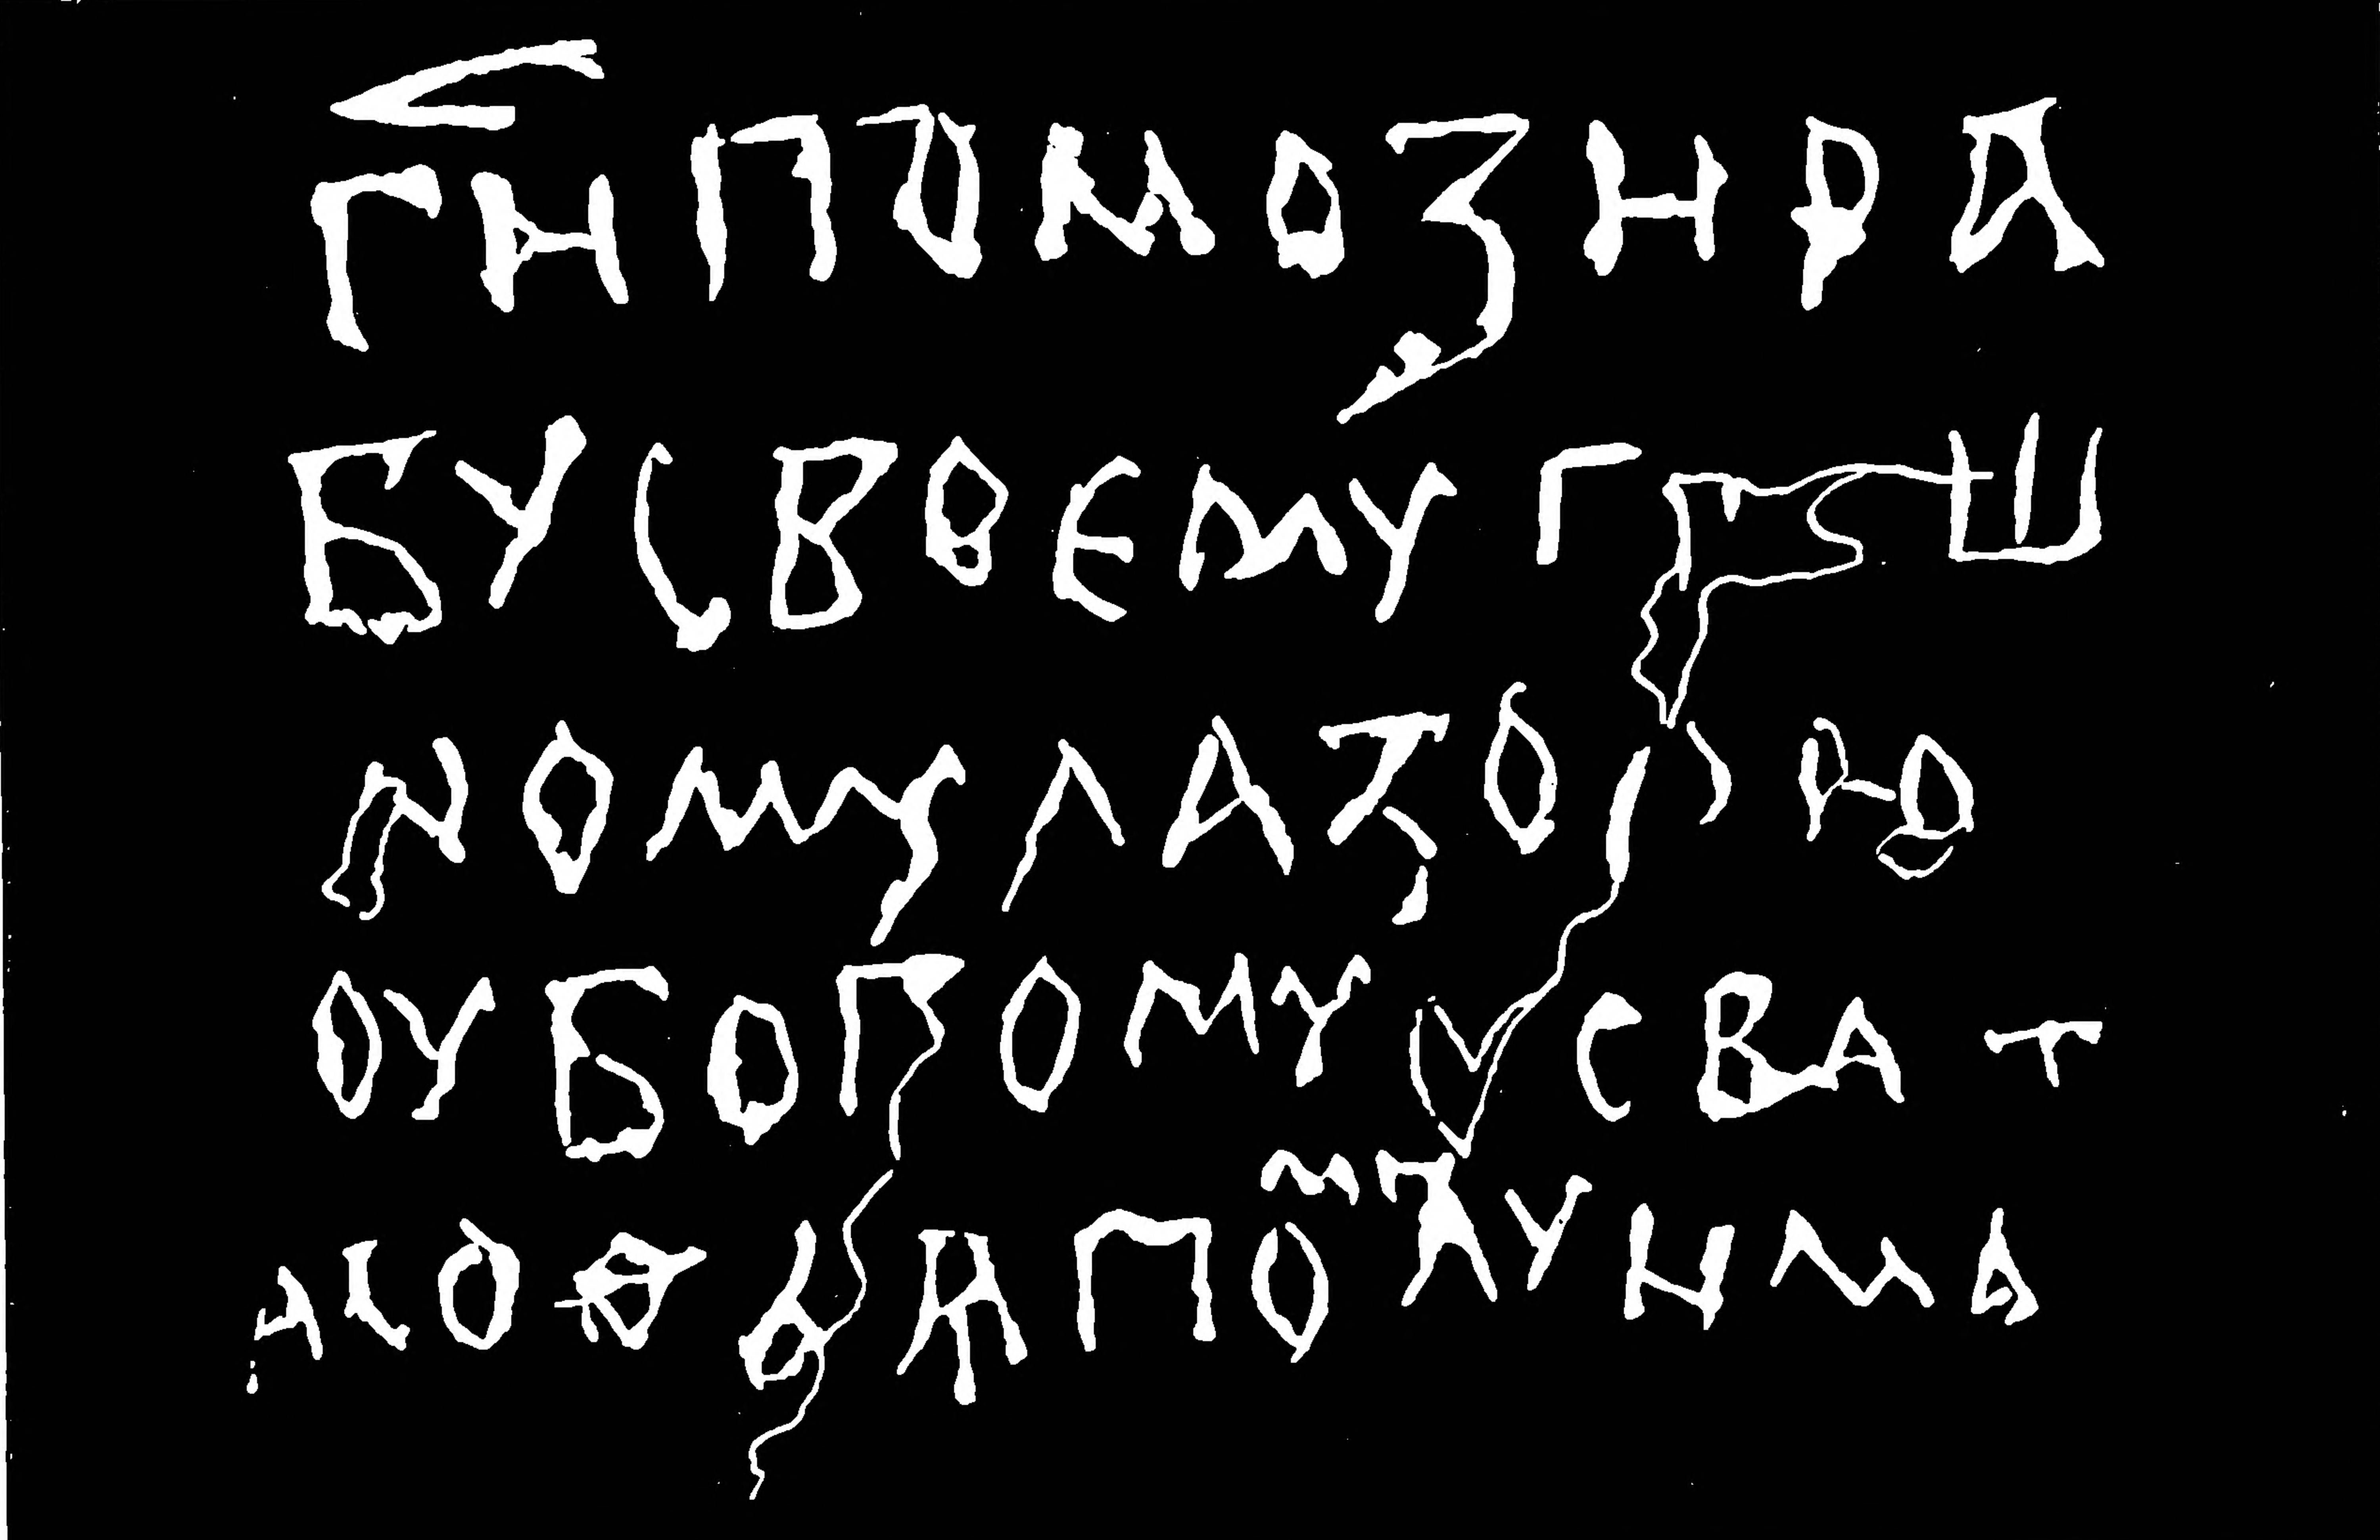 Г҃И ПОМОЗИ РА
БУ СВВЕМУ ГРѢШ
НОМУ ЛАЗОРЮ
ОУБОГОМУ СВАТ
А СОѲЬѦ ПОМЛУИ МА